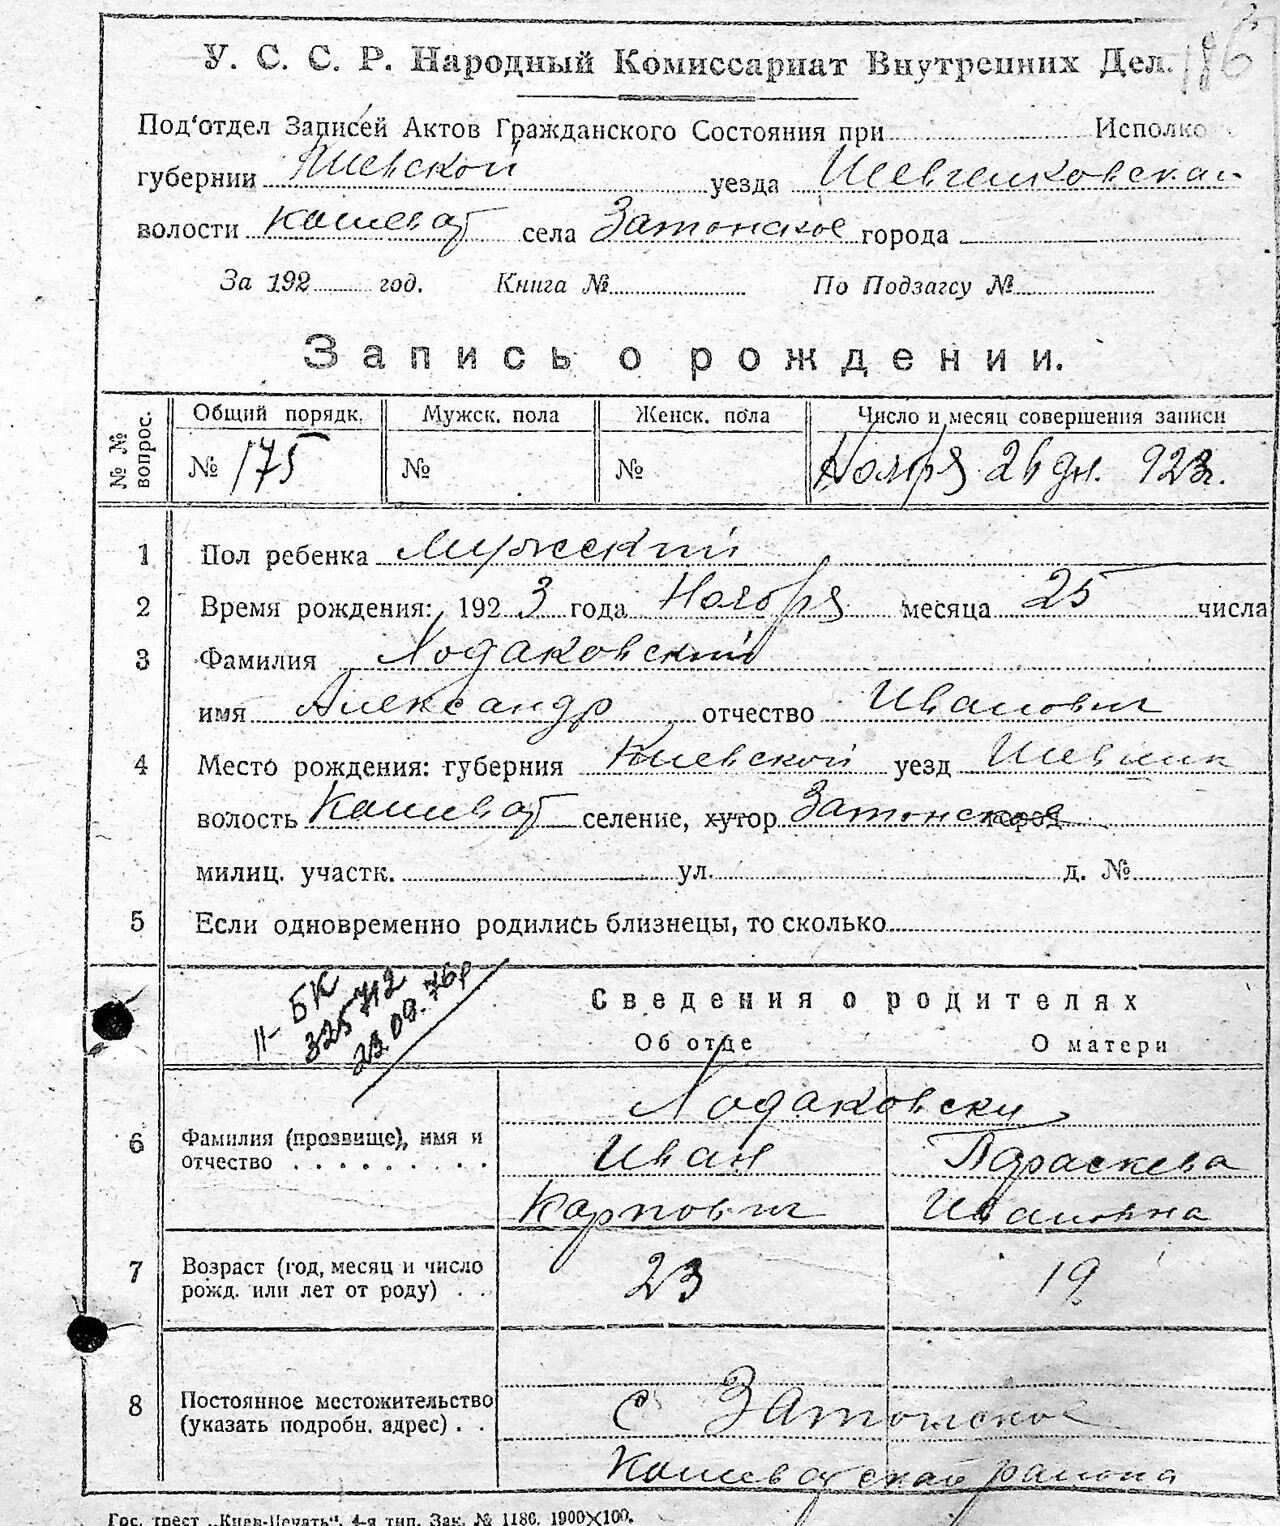 У. С. С. Р. Народный Комиссариат Внутренних Дел. 186
Под'отдел Записей Актов Гражданского Состояния при Исполко
губернии Киевской уезда
волости Кошеват села Затонское города
За 192 год. Книга № По Подзагсу №
Запись о рождении.
№ № вопрос. Общий порядк. Мужск. пола Женск. пола Число и месяц совершения записи
№ 175 № № Ноября 26 дн. 923г.
1 Пол ребенка Мужеский
2 Время рождения: 1923 года Ноября месяца 25 числа
3 Фамилия Ходаковский
имя Александр отчество Иванович
4 Место рождения: губерния Киевской уезд
волость Кошеват селение, хутор Затонское город
милиц. участк. ул. д. №
5 Если одновременно родились близнецы, то сколько
II-БК
325712
23.09.76г
Сведения о родителях
Об отце О матери
Ходаковски
6 Фамилия (прозвище), имя и Иван Параскева
отчество Карпович Ивановна
7 Возраст (год, месяц и число 23 19
рожд. или лет от роду)
8 Постоянное местожительство с Затонское
(указать подробн. адрес)
Кошеватской района
Гос. трест „Киев-Печать“. 4-я тип. Зак. № 1186. 1900×100.